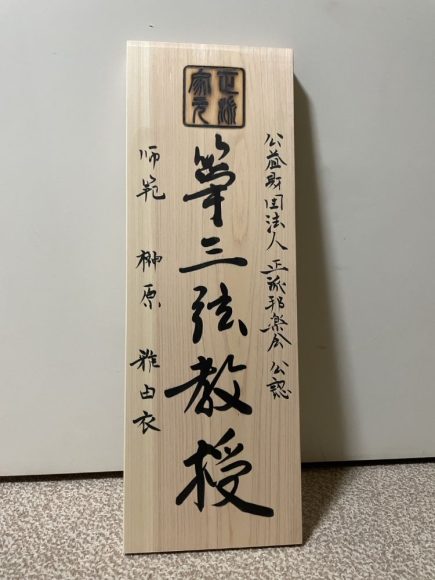 正派
家元
公益財団法人 正派邦楽会 公認
筝三弦教授
師範 榊原 雅由衣